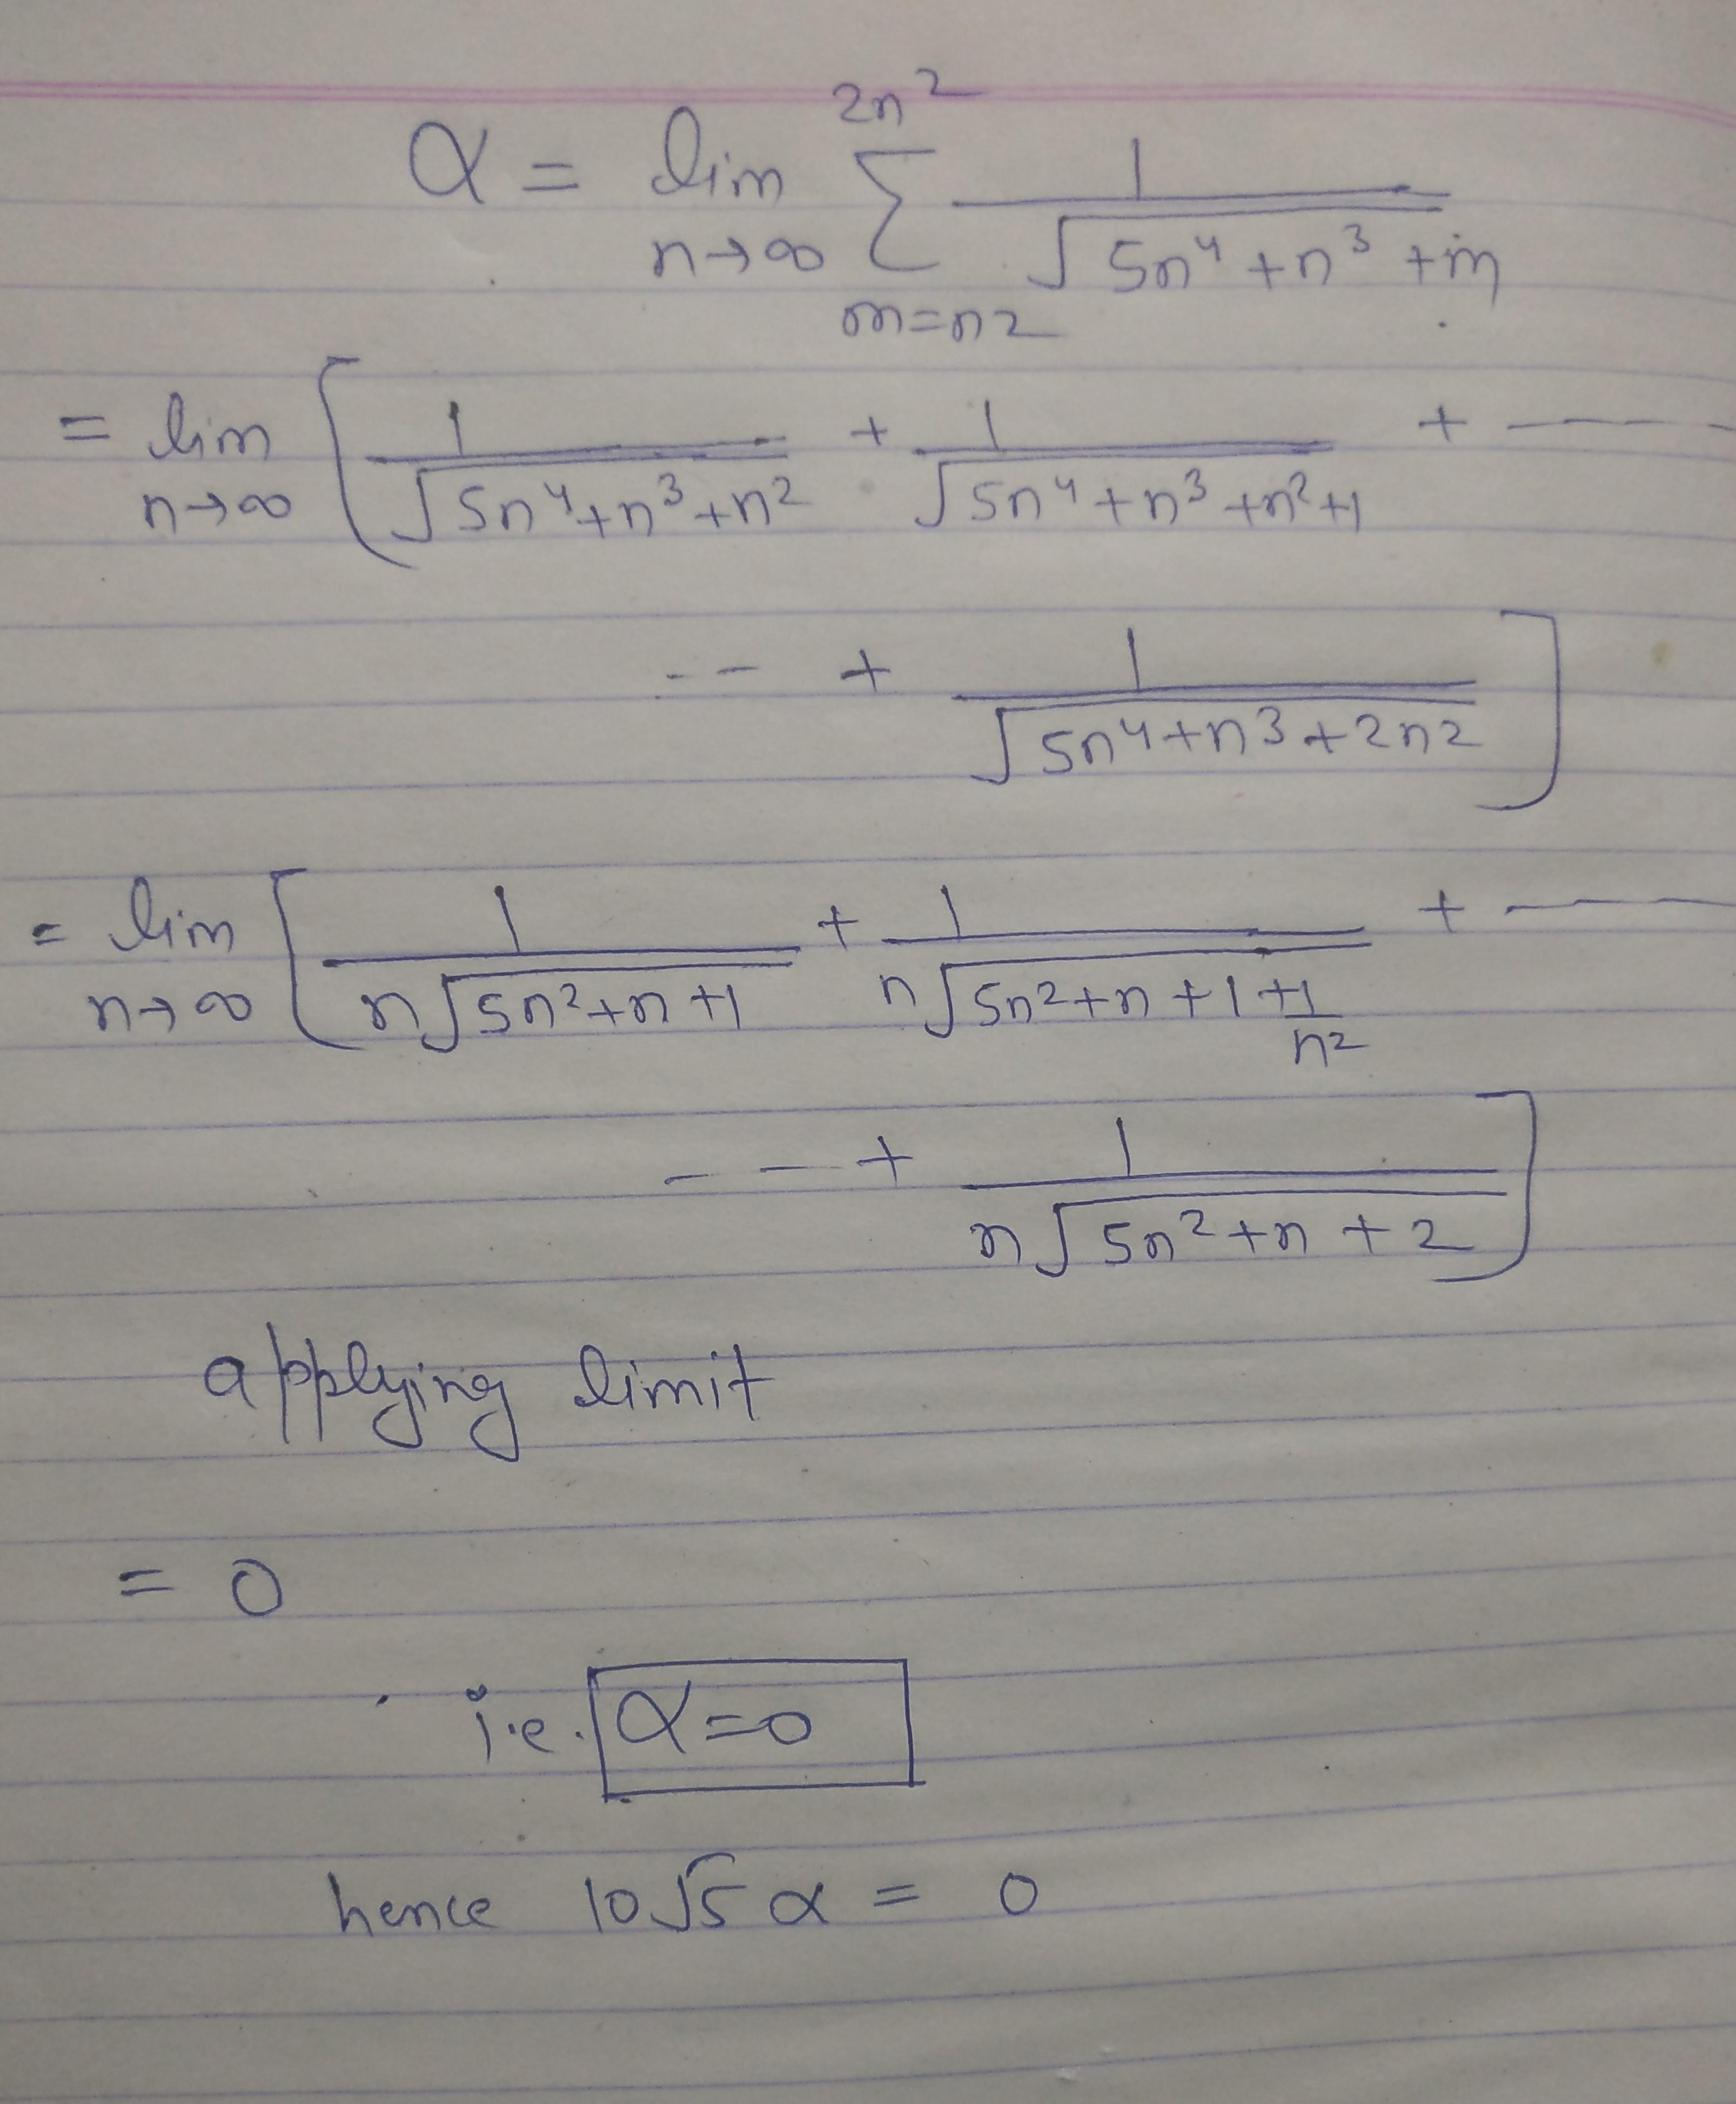 α = lim_{n→∞} Σ_{m=n2}^{2n²} 1/√(5n⁴+n³+m)
= lim_{n→∞} [ 1/√(5n⁴+n³+n²) + 1/√(5n⁴+n³+n²+1) + ----
-- + 1/√(5n⁴+n3+2n2) ]
= lim_{n→∞} [ 1/(n√(5n²+n+1)) + 1/(n√(5n²+n+1+1/n²)) + ----
-- + 1/(n√(5n²+n+2)) ]
applying limit
= 0
i.e. α=0
hence 10√5 α = 0